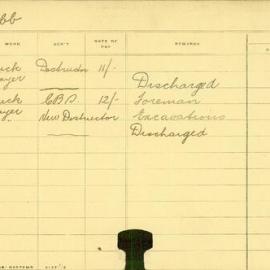 bb
WORK DEP'T RATE OF PAY REMARKS
uck Destructor 11/-
ayer Discharged
uck C.B.S. 12/- Foreman
ayer New Destructor Excavations
Discharged